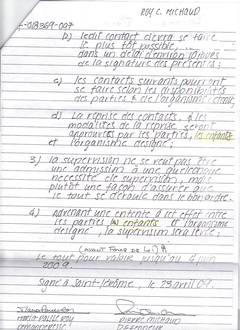 ROY C. MICHAUD
b) ledit contact devra se faire
le plus tôt possible,
dans un délai d'environ jours
de la signature des présentes;
c) les contacts suivants pourront
se faire selon les disponibilités
des parties & de l'organisme
d) La reprise des contacts, & les
modalités de la reprise seront
approuvées par les parties, les enfants
et l'organisme désigné;
3) la supervision ne se veut pas être
une admission à une quelconque
nécessité de supervision, mais
plutôt une façon d'assurer que
tout se déroule dans le bon ordre.
4) advenant une entente à cet effet entre
les parties, les enfants et l'organisme
désigné, la supervision sera levée;
Le tout pour valoir jusqu'au juin
2009
Signé à Saint-Jérôme, le 23 avril 09.
PIERRE MICHAUD
DÉFENDEUR
DEMANDERESSE